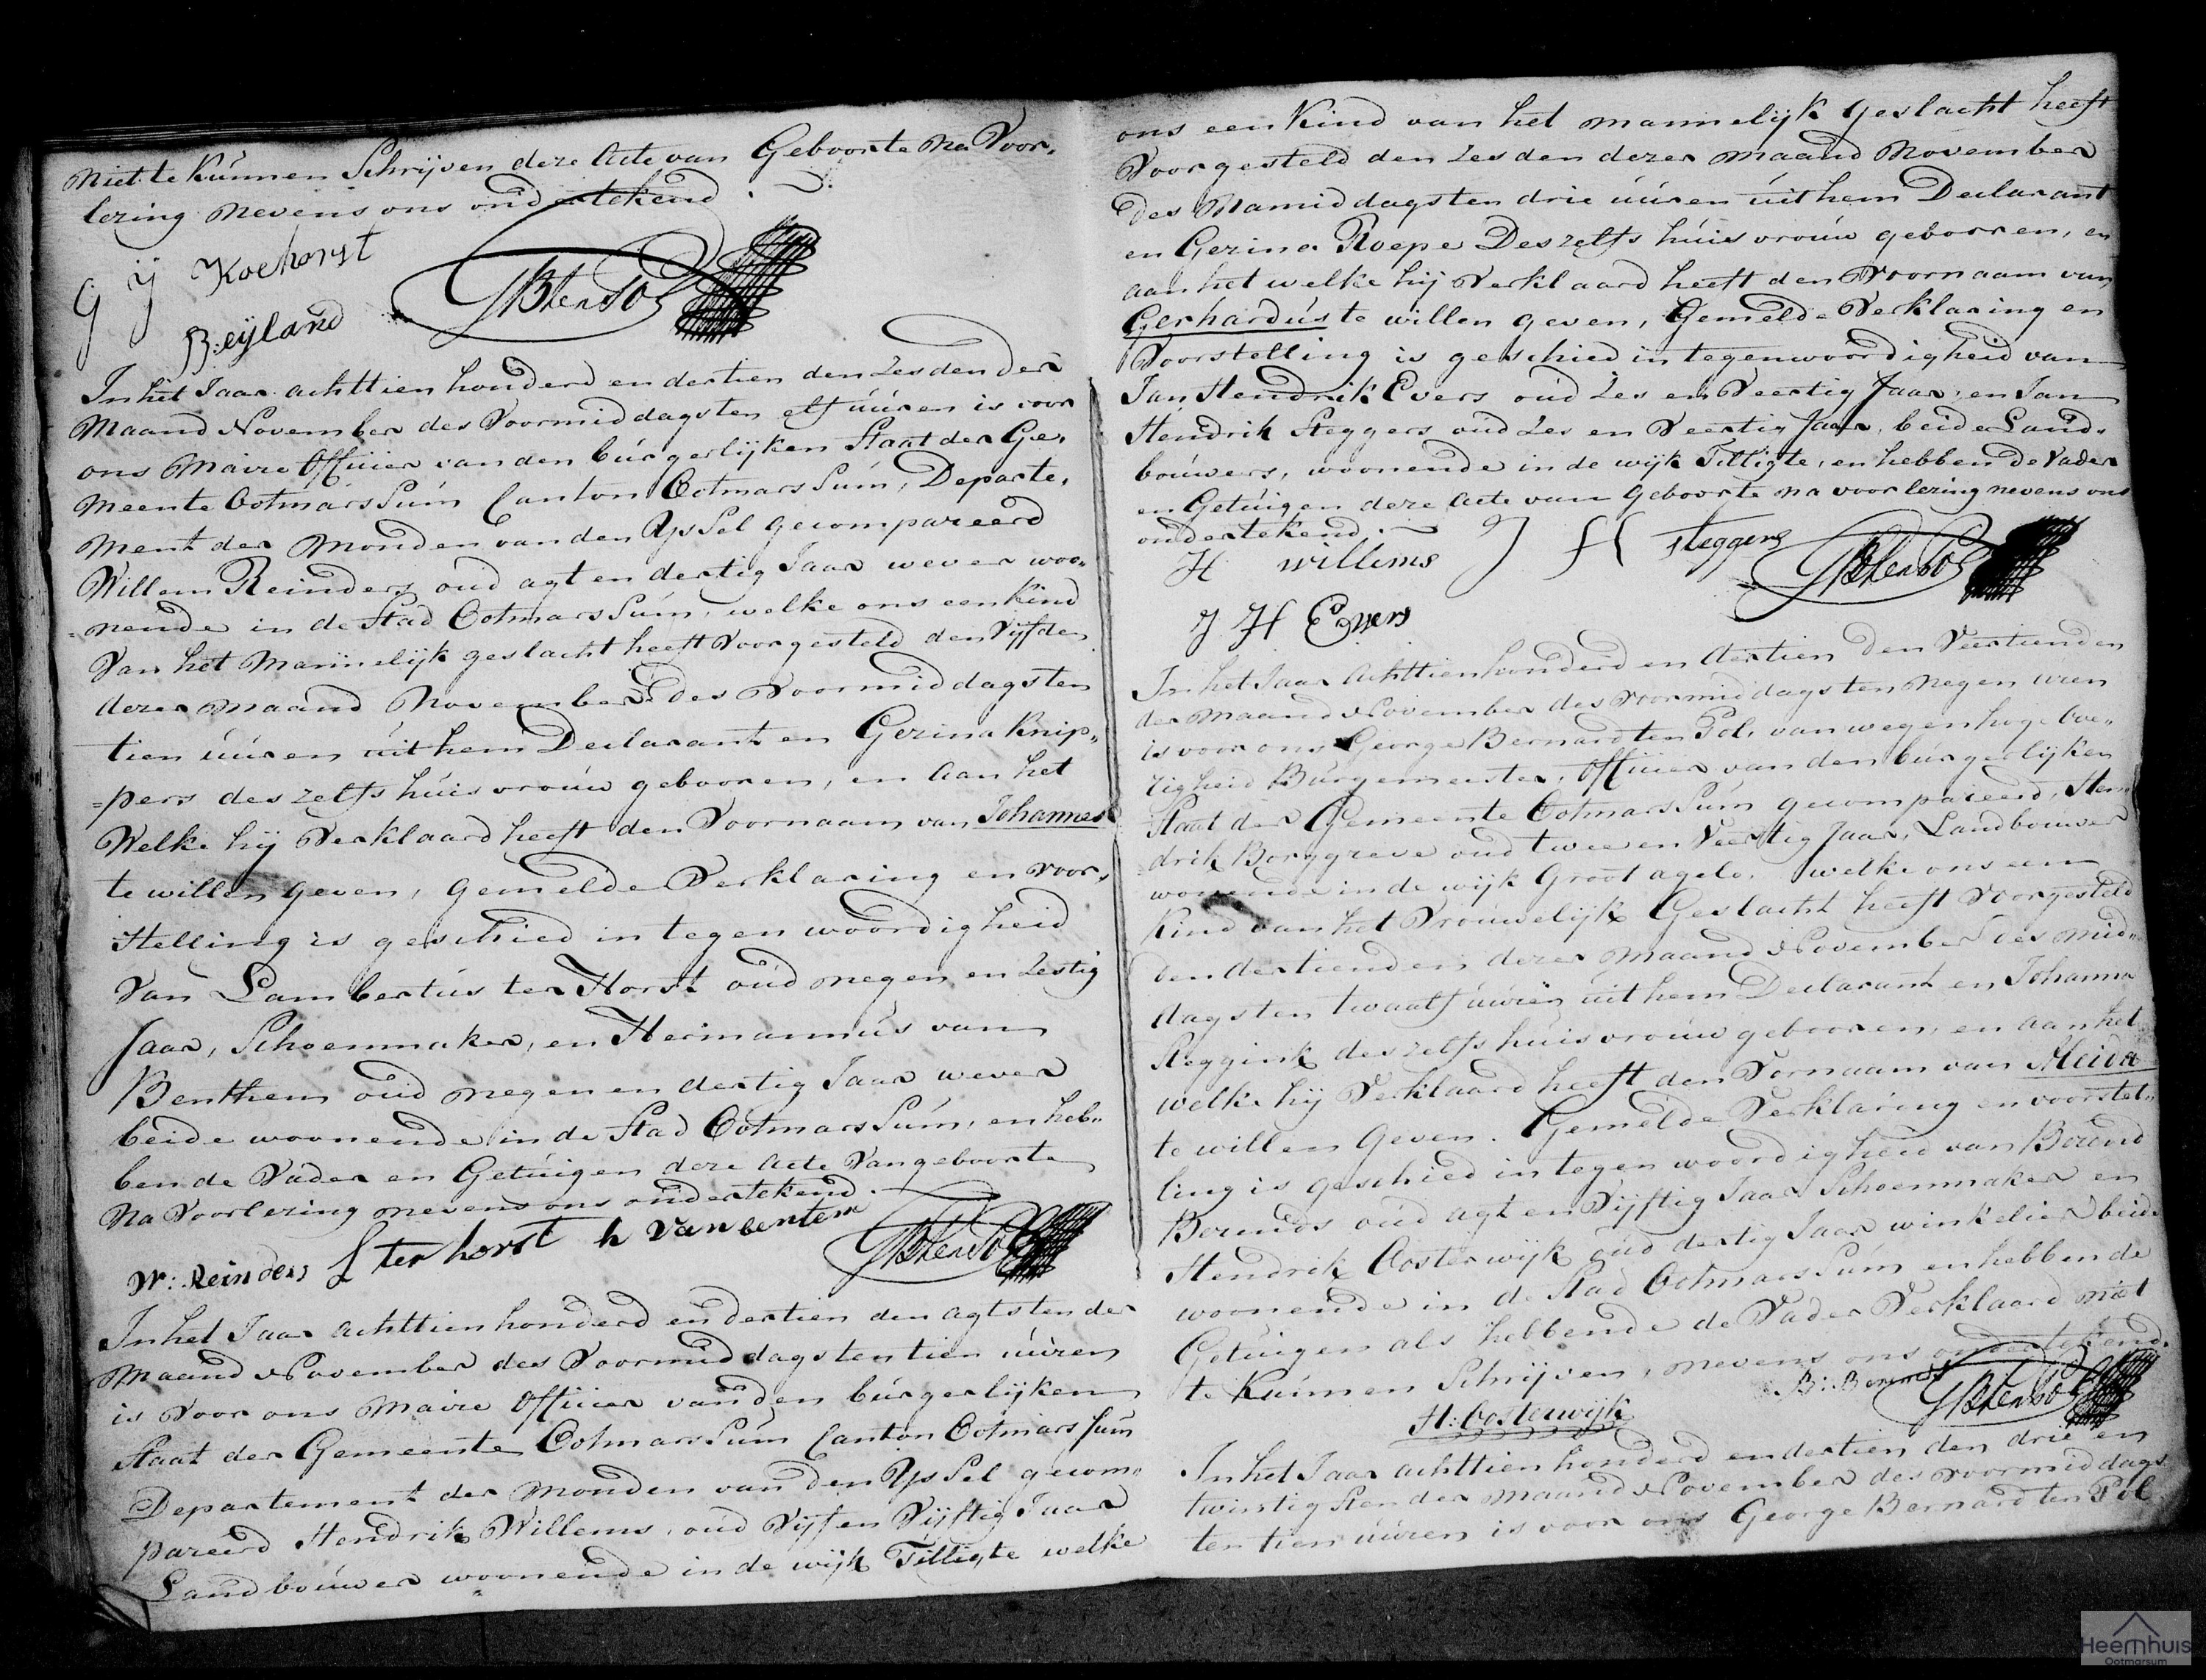 Niet te kunnen Schrijven deze Acte van Geboorte na Voor,
lezing nevens ons ondertekend.
G J Koehorst
B: eijland
GBtenPol
In het Jaar achttien honderd en dertien den Zesden der
Maand November des Voormiddags ten elf úúren is voor
ons Maire Officier van den búrgerlijken Staat der Ge,
meente OotmarsSúm Canton OotmarsSúm, Departe,
ment der Monden van den YsSel gecompareerd
Willem Reinders oud agt en dertig Jaar wever woo„
nende in de Stad OotmarsSúm, welke ons een kind
Van het Mannelijk geslacht heeft voorgesteld den Vijfden
dezer maand November des Voormiddags ten
tien úúren úit hem Declarant en Gezina Knip„
=pers deszelfs húisvroúw gebooren, en aan het
Welke hij Verklaard heeft den Voornaam van Johannes
te willen geven, gemelde Verklaring en voor,
stelling is geschied in tegenwoordigheid
Van Lambertús ter Horst oúd negen en Zestig
Jaar, Schoenmaker, en Hermannús van
Benthem oúd negen en dertig Jaar wever
beide woonende in de Stad OotmarsSúm, en heb„
ben de Vader en Getúigen deze Acte Van geboorte
Na Voorlezing nevens ons ondertekend.
W: Reinders L ter horst h van bentem
GBtenPol
In het Jaar achttien honderd en dertien den agtsten der
Maand November des Voormiddags ten tien úúren
is voor ons Maire Officier van den búrgerlijken
Staat der Gemeente OotmarsSúm Canton OotmarsSúm
Departement der Monden van den YsSel gecom„
pareerd Hendrik Willems, oúd Vijf en Vijftig Jaar
Landboúwer woonende in de wijk Tilligte welke
ons een Kind van het mannelijk geslacht heeft
Voorgesteld den Zesden dezer maand November
des Namiddags ten drie úúren úit hem Declarant
en Gezina Roepe Deszelfs húisvroúw gebooren, en
aan het welke hij Verklaard heeft den Voornaam van
Gerhardús te willen geven, Gemelde Verklaring en
Voorstelling is geschied in tegenwoordigheid van
Jan Hendrik Evers oúd Zes en Veertig Jaar, en Jan
Hendrik Steggers oud Zes en Veertig Jaar, beide Land,
boúwers, woonende in de wijk Tilligte, en hebben de Vader
en Getúigen deze Acte van Geboorte na voorlezing nevens ons
ondertekend.
H willems J H steggers
GBtenPol
J H Evers
In het Jaar Achttienhonderd en dertien den Veertienden
der Maand November des voormiddags ten Negen uren
is voor ons George Bernard ten Pol, van wegen hoge boe„
zigheid Búrgemeester, Officier van den búrgerlijken
Staat der Gemeente OotmarsSúm gecompareerd, Hen„
drik Borggreve oud twee en Veertig Jaar, Landbouwer
wonende in de wijk Groot agelo, welke ons een
Kind van het Vroúwelijk Geslacht heeft Voorgesteld
den dertienden dezer Maand November des mid„
dags ten twaalf úúren úit hem Declarant en Johanna
Reggink deszelfs huisvroúw gebooren, en aan het
welke hij Verklaard heeft den Vornaam van Aleida
te willen Geven. Gemelde Verklaring en voorstel„
ling is geschied in tegenwoordigheid van Berend
Berends oúd agt en Vijftig Jaar Schoenmaker en
Hendrik Oosterwijk oúd dertig Jaar winkelier beide
woonende in de Stad OotmarsSúm en hebben de
Getúigen als hebbende de Vader Verklaard niet
te Kúnnen Schrijven, nevens ons ondertekend.
B: Berends
GBtenPol
H: Oosterwijk
In het Jaar achttien honderd en dertien den drie en
twintigsten der Maand November des voormiddags
ten tien úúren is voor ons George Bernard ten Pol
Heemhuis
Ootmarsum